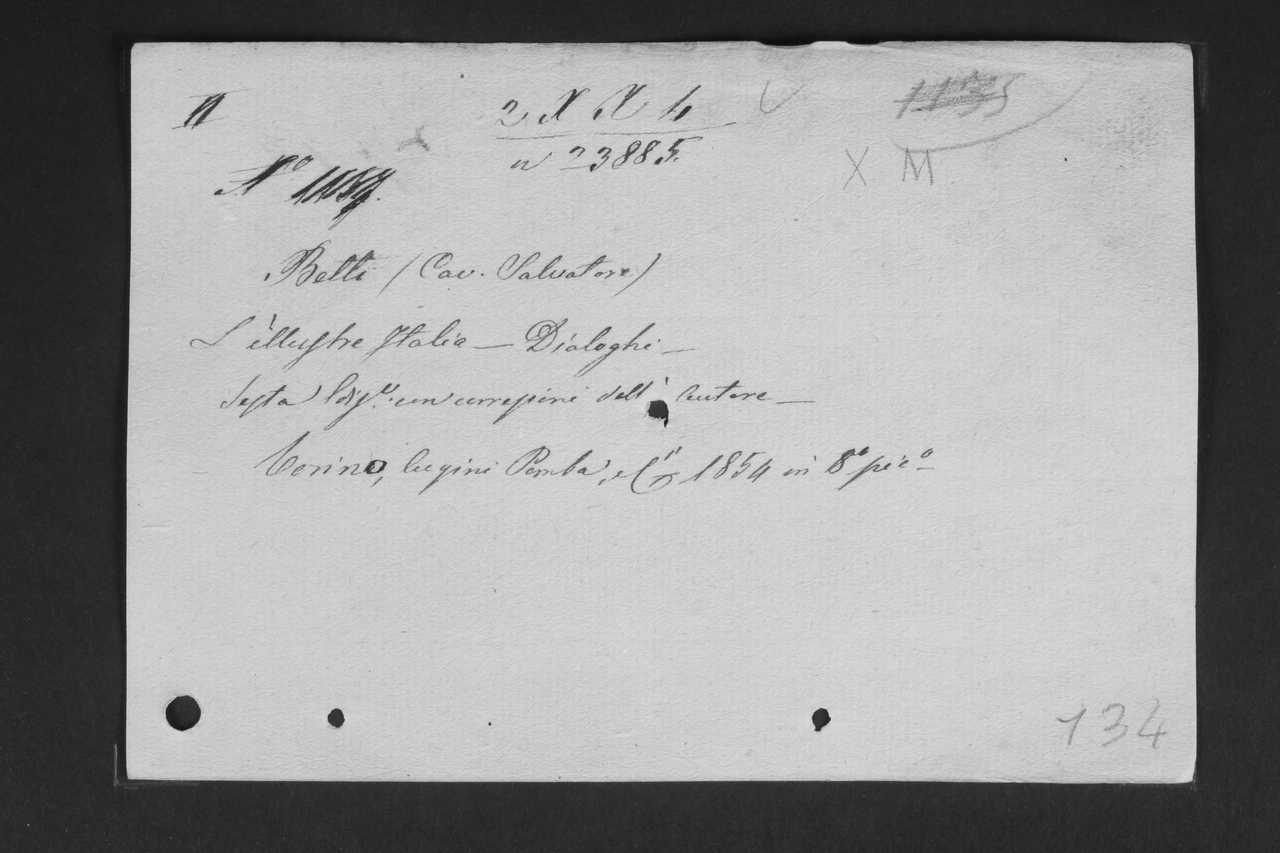 2 X X 4
n° 23885.
X M
Betti (Cav. Salvatore)
L'illustre Italia — Dialoghi —
Sesta Ediz.e con correzioni dell' Autore —
Torino, Cugini Pomba, e C.i 1854 in 8° pic°
134